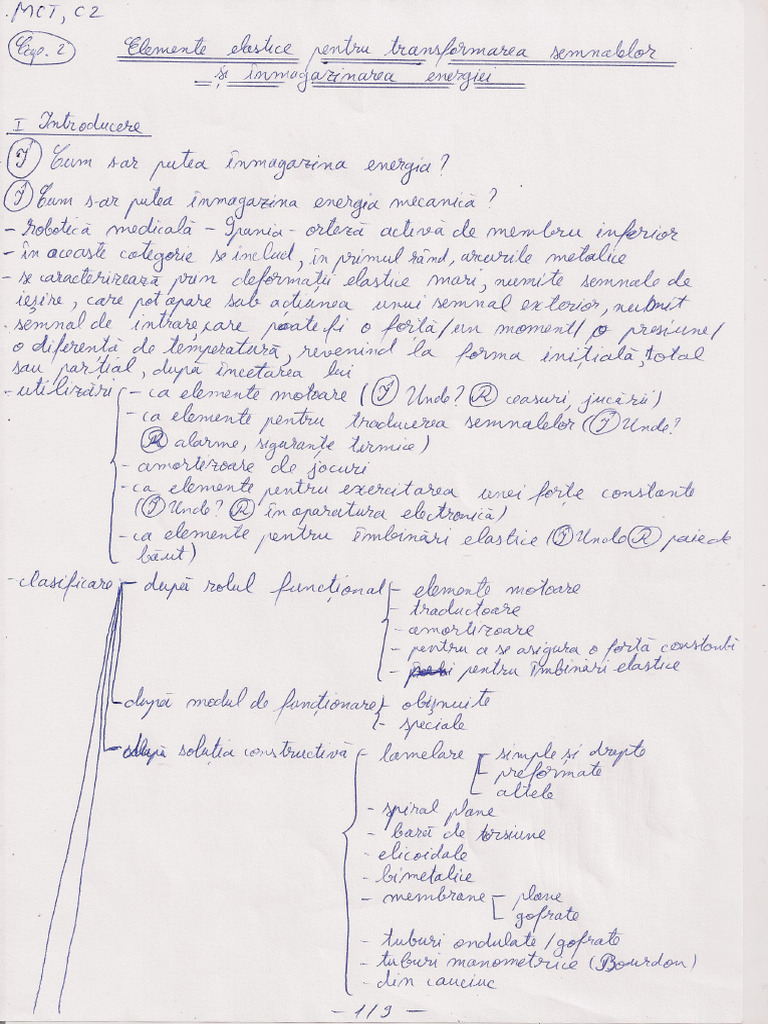 MCT, C2
Cap. 2 Elemente elastice pentru transformarea semnalelor
și înmagazinarea energiei
I Introducere
Î Cum s-ar putea înmagazina energia?
Î Cum s-ar putea înmagazina energia mecanică?
- Robotică medicală - Spania - orteză activă de membru inferior
- în aceaste categorie se includ, în primul rând, arcurile metalice
- se caracterizează prin deformații elastice mari, numite semnale de
ieșire, care pot apare sub acțiunea unui semnal exterior, numit
semnal de intrare, care poate fi o forță/un moment/ o presiune/
o diferență de temperatură, revenind la forma inițială, total
sau parțial, după încetarea lui
- utilizări - ca elemente motoare (Î Unde? R ceasuri, jucării)
- ca elemente pentru traducerea semnalelor (Î Unde?
R alarme, siguranțe termice)
- amortizoare de șocuri
- ca elemente pentru exercitarea unei forțe constante
(Î Unde? R în aparatura electronică)
- ca elemente pentru îmbinări elastice (Î Unde R paie de
băut)
- clasificare - după rolul funcțional - elemente motoare
- traductoare
- amortizoare
- pentru a se asigura o forță constantă
- pentru îmbinări elastice
- după modul de funcționare - obișnuite
- speciale
- după soluția constructivă - lamelare - simple și drepte
- preformate
- altele
- spiral plane
- bară de torsiune
- elicoidale
- bimetalice
- membrane - plane
- gofrate
- tuburi ondulate/gofrate
- tuburi manometrice (Bourdon)
- din cauciuc
- 1/9 -